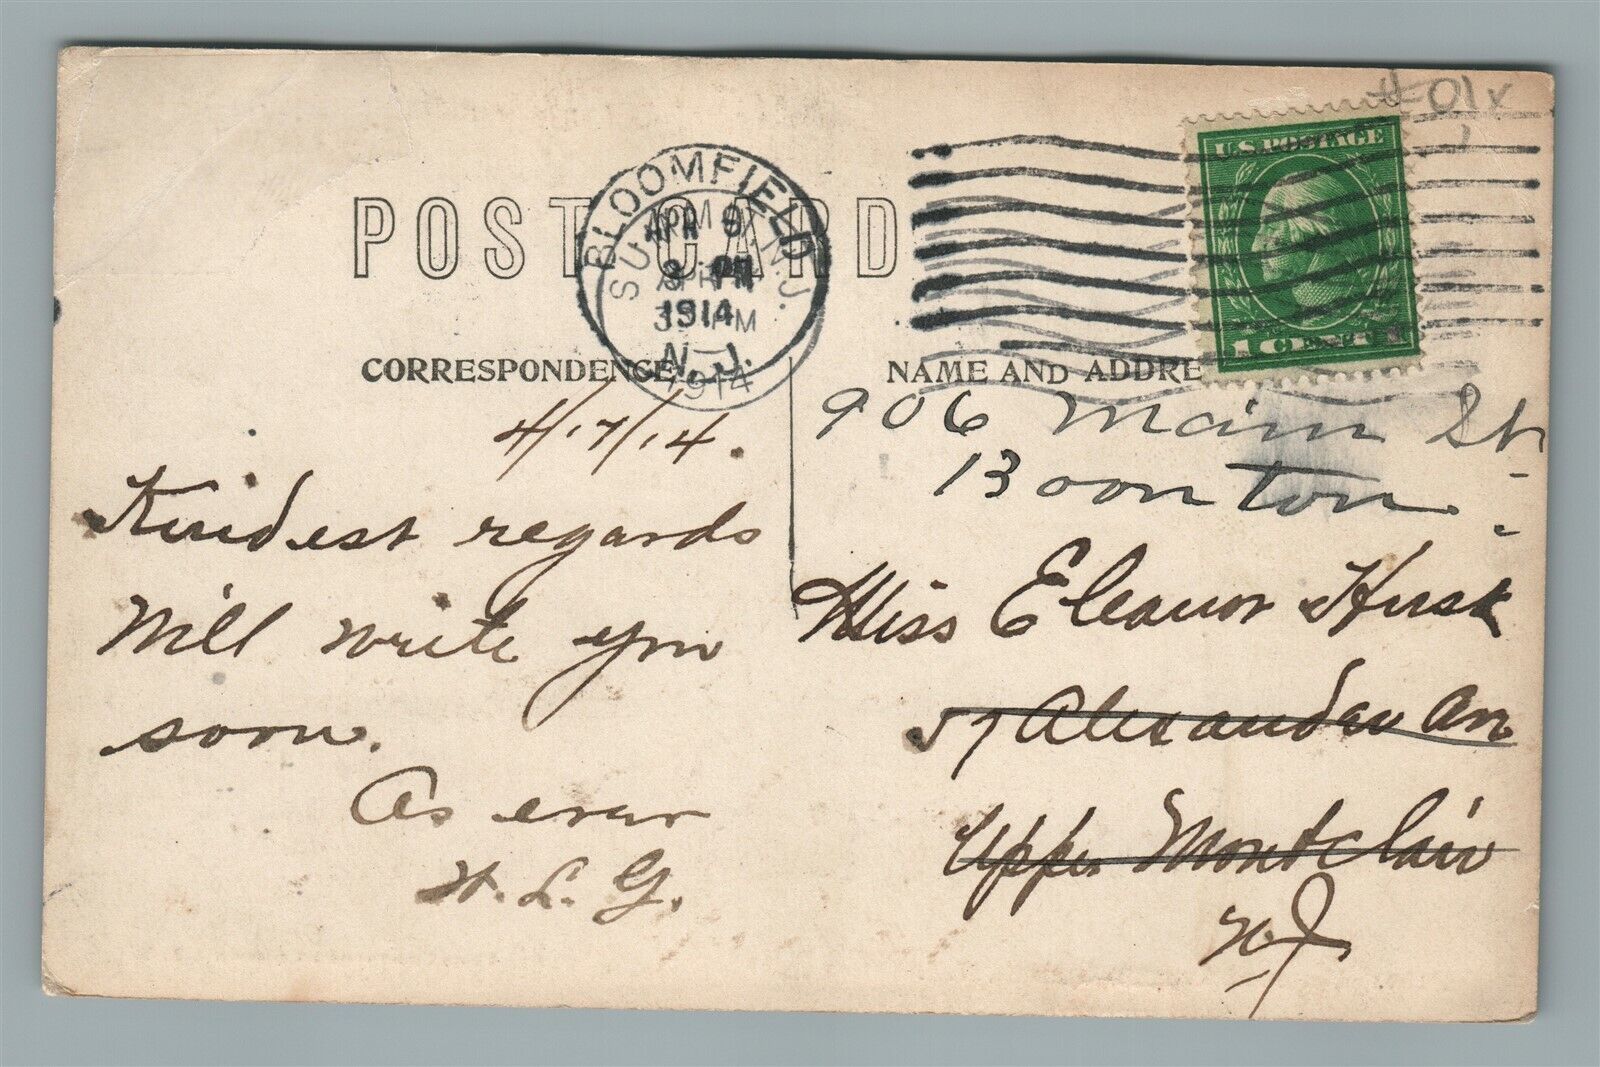 #01x
U.S. POSTAGE
1 CENT 1
POST CARD
BLOOMFIELD
APR 9
3 PM
1914
N.J.
SU N.J.
APR
3 PM
1914
CORRESPONDENCE
NAME AND ADDRE
4/17/14.
Kindest regards
Will write you
soon.
As ever
H. L. G.
906 Main St.
Boonton
Miss Eleanor Husk
57 Alexander Av
Upper Montclair
NJ